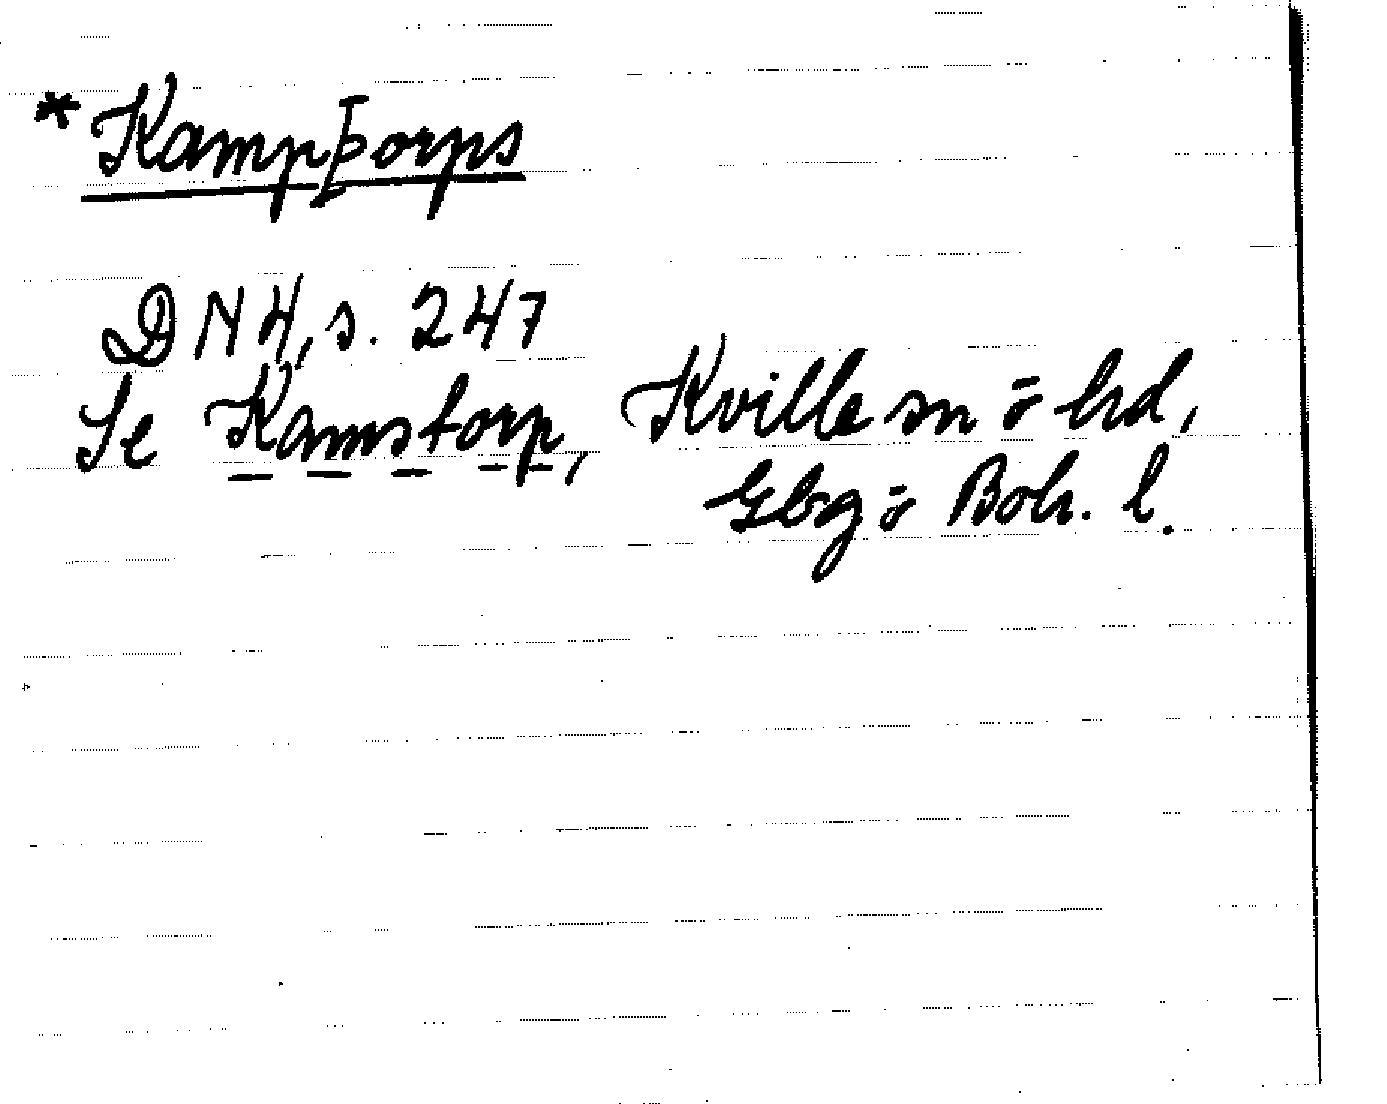 *Kampþorps
DN 4, s. 247
Se Kamstorp, Kville sn o hd,
Gbg o Boh. l.